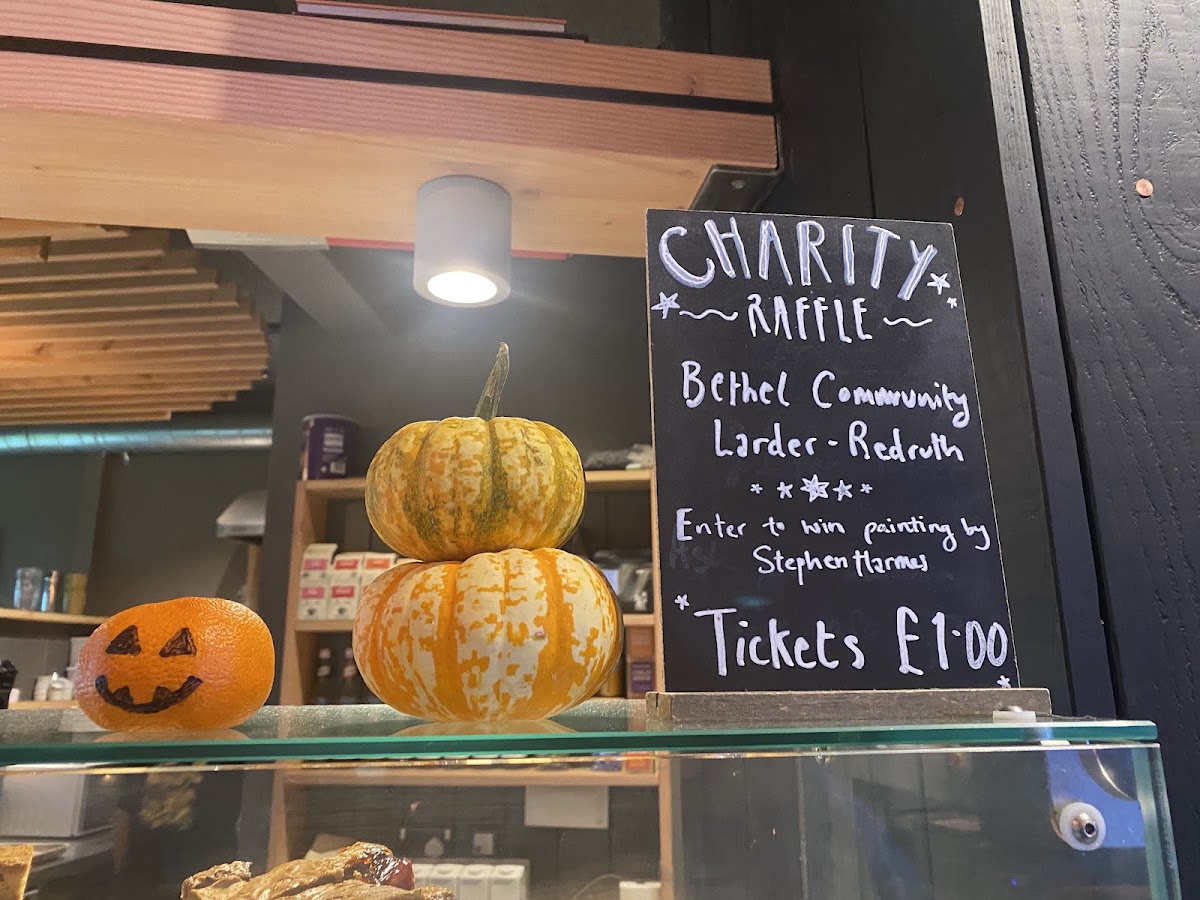 CHARITY
RAFFLE
Bethel Community
Larder - Redruth
Enter to win painting by
Stephen Harmes
Tickets £1.00